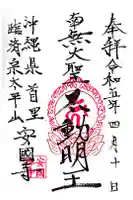 奉拝 令和五年四月十日
南無大聖不動明王
沖縄県首里
臨済宗太平山安國寺